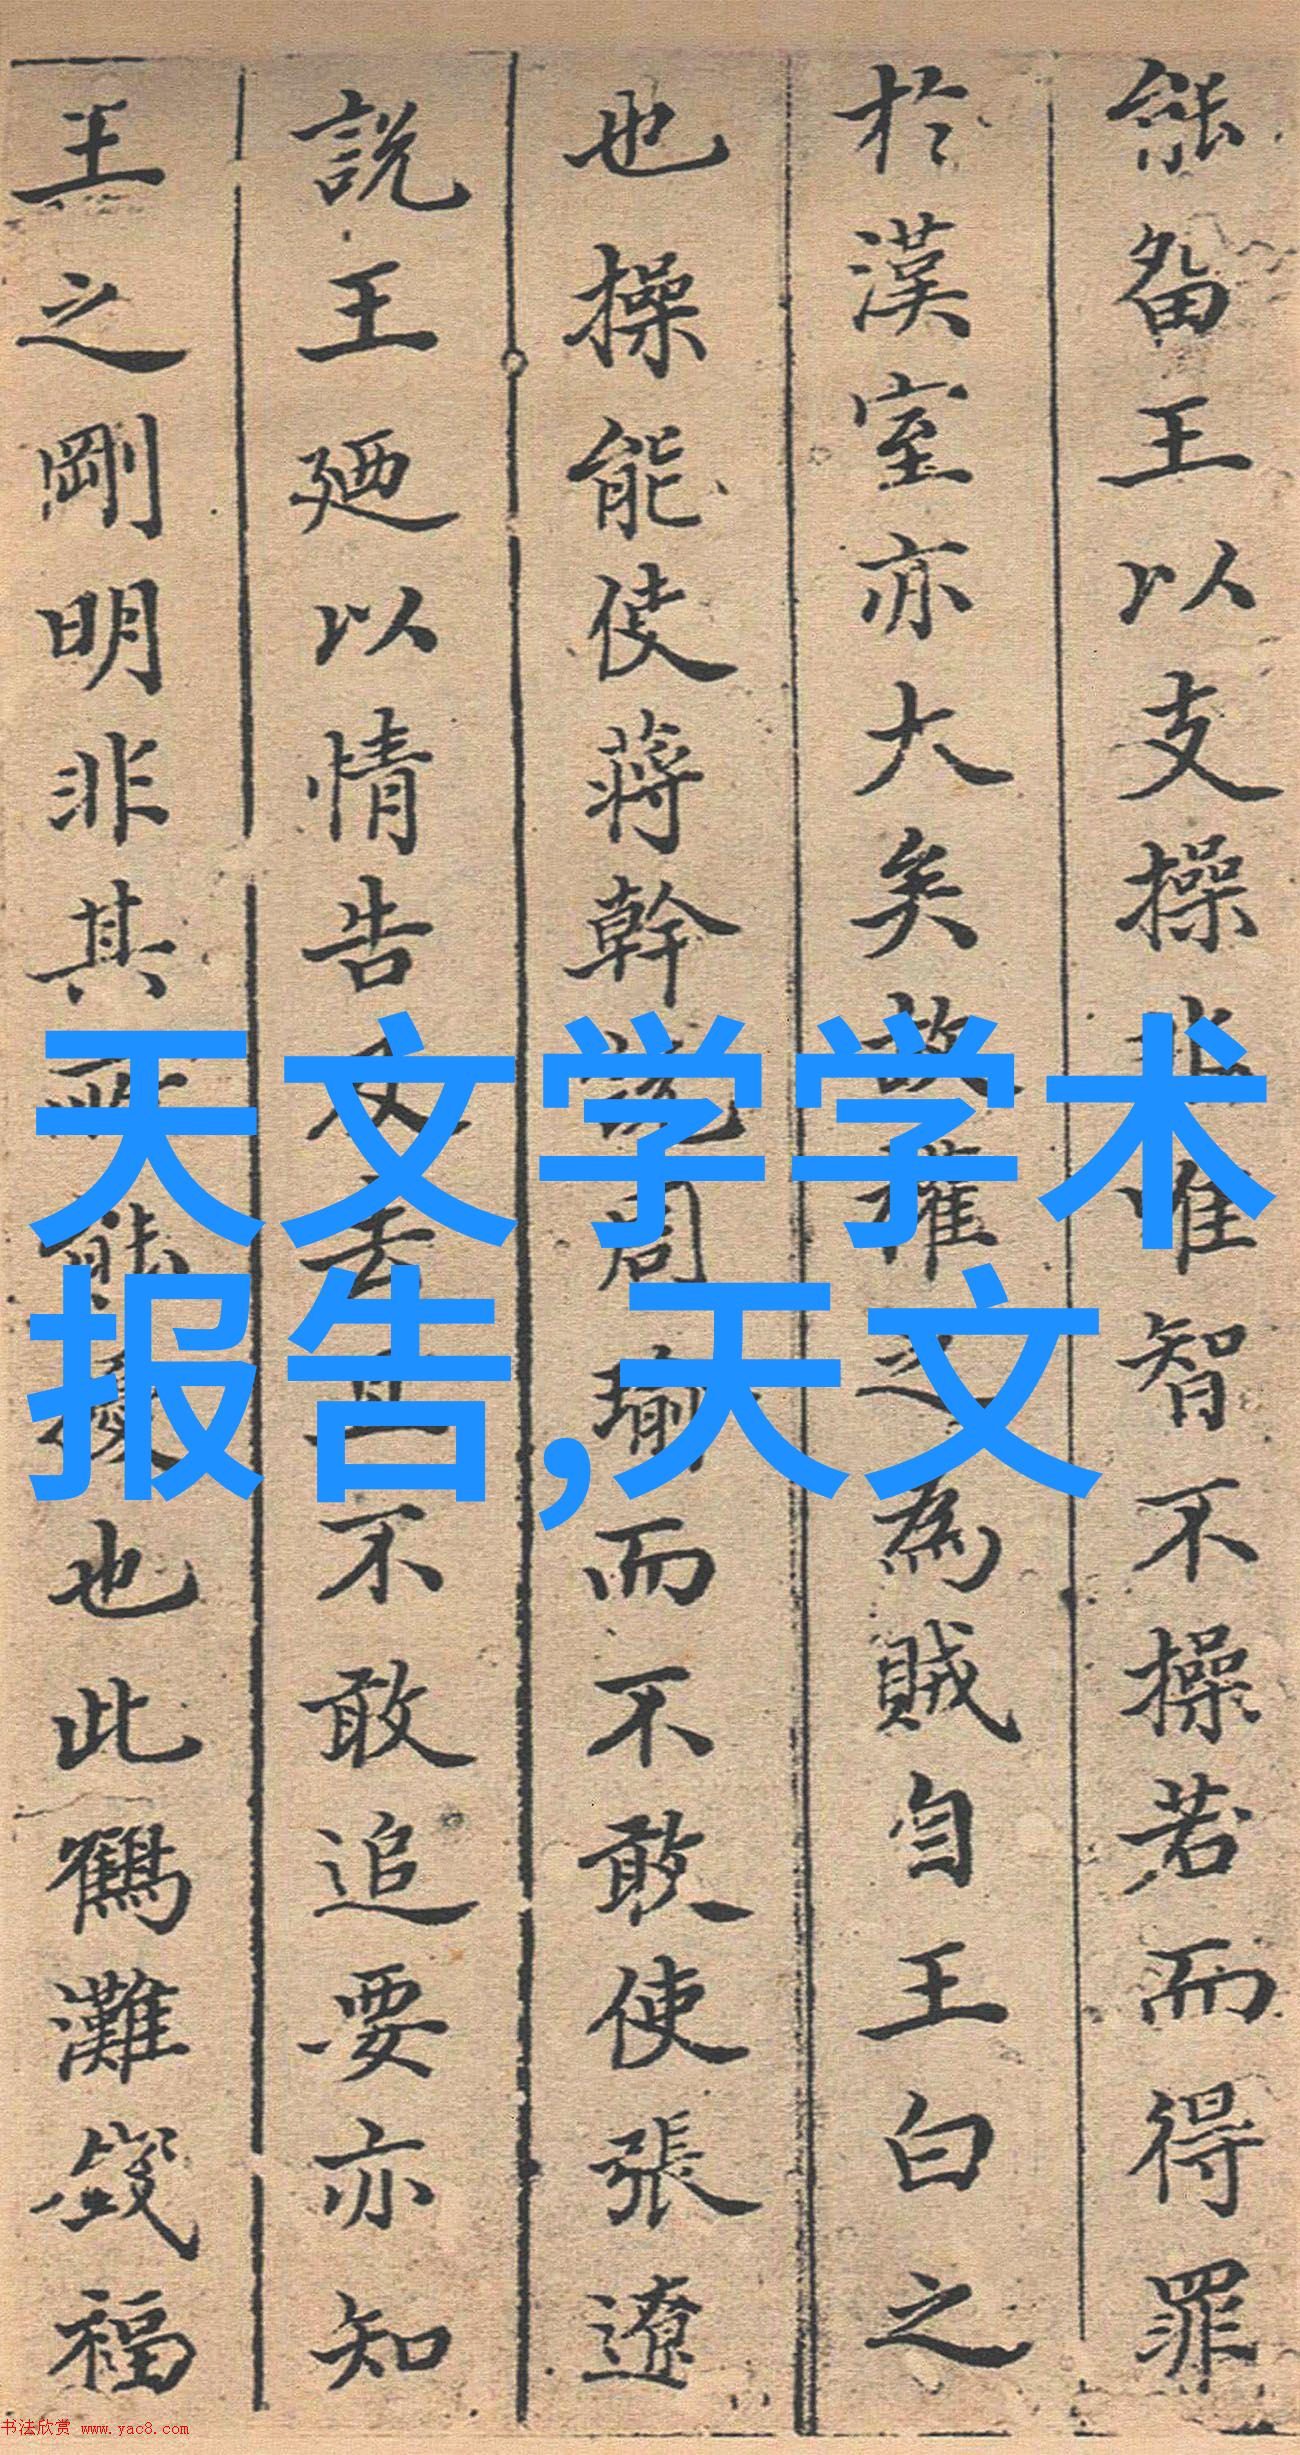 能留王以支操非惟智不操若而得罪
於漢室亦大矣故權之為賊自王白之
也操能使蔣幹說周瑜而不敢使張遼
說王廼以情告去不敢追要亦知
王之剛明非其所能也此鶴灘錢福
天文学学术
报告,天文
书法欣赏 www.yac8.com